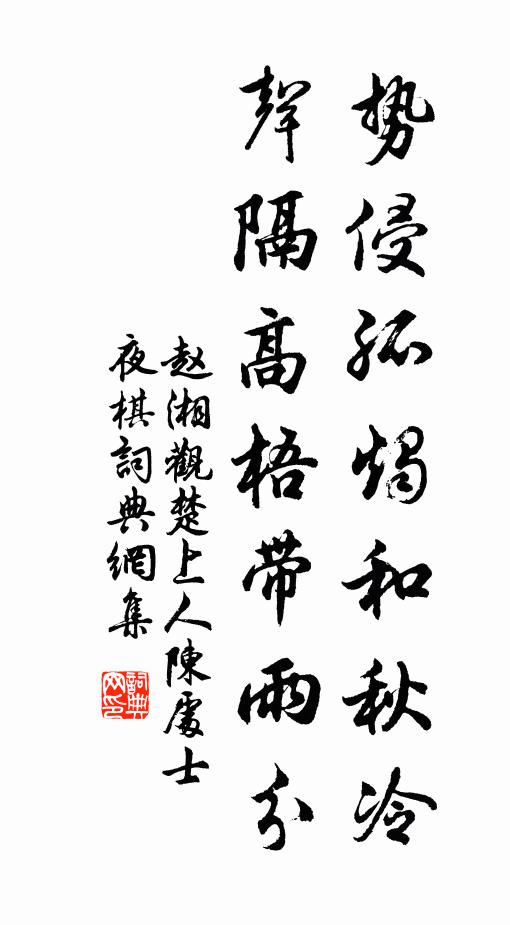 势侵孤燭和秋冷
聲隔高梧带雨分
赵湘觀楚上人陳處士
夜棋詞典網集
詞典网印